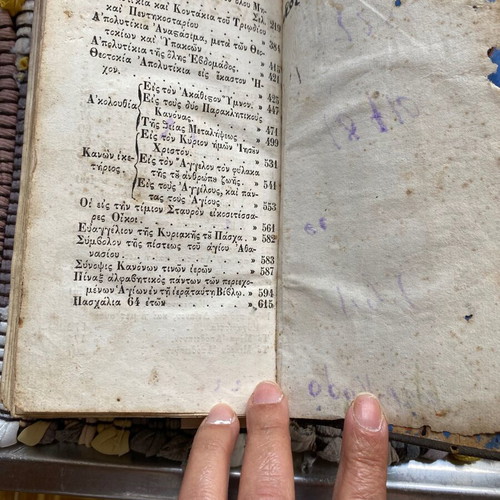 κία καὶ Κοντάκια τοῦ Τριῳδίου
καὶ Πεντηκοσταρίου . . . . Σελ. 219
Ἀπολυτίκια Ἀναστάσιμα, μετὰ τῶν Θεο-
τοκίων καὶ Ὑπακοῶν . . . » 384
Ἀπολυτίκια τῆς ὅλης Ἑβδομάδος. » 415
Θεοτοκία Ἀπολυτίκια εἰς ἕκαστον Ἦ-
χον. . . . » 421
Εἰς τὸν Ἀκάθιστον Ὕμνον. » 425
Ἀκολουθία Εἰς τοὺς δύο Παρακλητικοὺς » 447
Κανόνας.
Τῆς Θείας Μεταλήψεως » 474
Εἰς τὸν Κύριον ἡμῶν Ἰησοῦν » 499
Χριστόν.
Κανὼν ἱκε- Εἰς τὸν Ἄγγελον τὸν φύλακα » 531
τήριος . τῆς τοῦ ἀνθρώπου ζωῆς. » 541
Εἰς τοὺς Ἀγγέλους, καὶ πάν-
τας τοὺς Ἁγίους » 553
Οἱ εἰς τὴν τίμιον Σταυρὸν εἰκοσιτέσσα-
ρες Οἶκοι. . . . » 561
Εὐαγγέλιον τῆς Κυριακῆς τοῦ Πάσχα. » 582
Σύμβολον τῆς πίστεως τοῦ ἁγίου Ἀθα-
νασίου. . . . » 583
Σύνοψις Κανόνων τινῶν ἱερῶν » 587
Πίναξ ἀλφαβητικὸς πάντων τῶν περιεχο-
μένων Ἁγίων ἐν τῇ ἱερᾷ ταύτῃ Βίβλῳ. » 594
Πασχάλια 64 ἐτῶν . . . . » 615